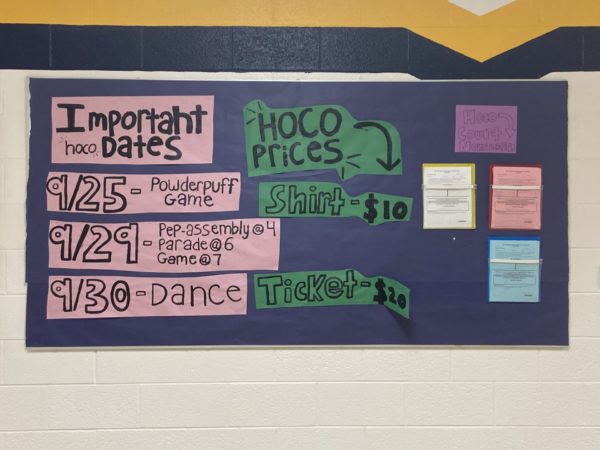 Important
hoco Dates
9/25 - Powderpuff
Game
9/29 - Pep-assembly@4
Parade@6
Game@7
9/30 - Dance
HOCO
Prices
Shirt - $10
Ticket - $20
Hoco
Court